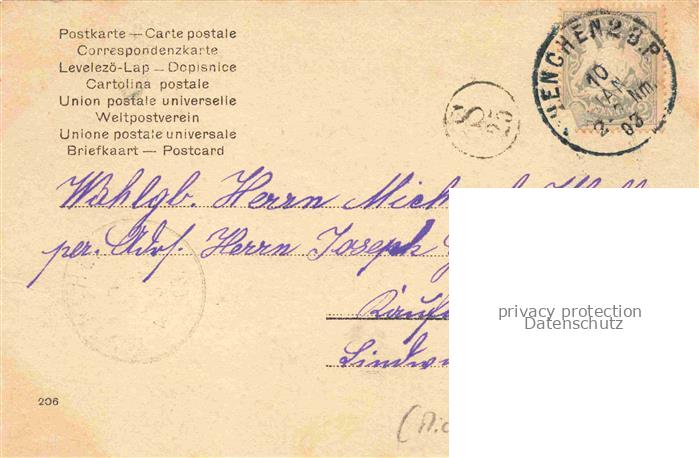 Postkarte — Carte postale
Correspondenzkarte
Levelező-Lap — Dopisnice
Cartolina postale
Union postale universelle
Weltpostverein
Unione postale universale
Briefkaart — Postcard
MUENCHEN 2 B.P.
10
Nm.
03
S
55
Wohlgb. Herrn
per. Adr. Herrn Joseph
Kaufe
Lindw
privacy protection
Datenschutz
206